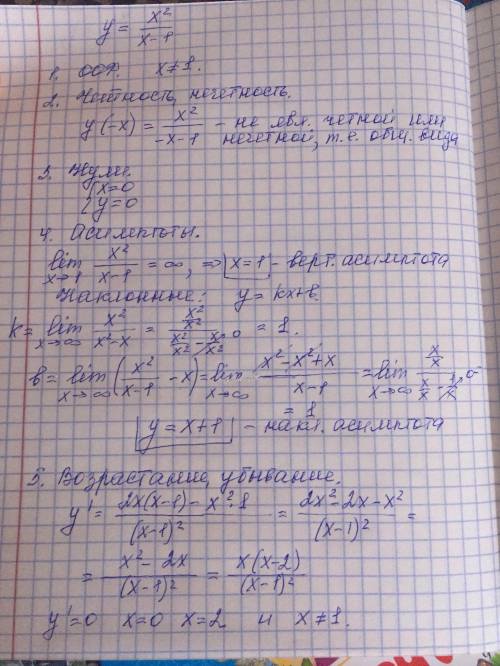 y = x²/(x-1)
1. ООФ. x≠1.
2. Чётность, нечетность.
y(-x) = x²/(-x-1) - не явл. четной или
нечетной, т.е. общ. вида
3. Нули.
{x=0
{y=0
4. Асимптоты.
lim x→1 x²/(x-1) = ∞, => x=1 - верт. асимптота
Наклонные: y = kx+b.
k = lim x→∞ x²/(x²-x) = (x²/x²)/(x²/x² - x/x²→0) = 1.
b = lim x→∞ (x²/(x-1) - x) = lim x→∞ (x²-x²+x)/(x-1) = lim x→∞ (x/x)/(x/x - 1/x→0)
= 1
y = x+1 - накл. асимптота
5. Возрастание, убывание.
y' = (2x(x-1) - x²·1)/(x-1)² = (2x²-2x-x²)/(x-1)² =
= (x²-2x)/(x-1)² = x(x-2)/(x-1)²
y'=0 x=0 x=2 и x≠1.